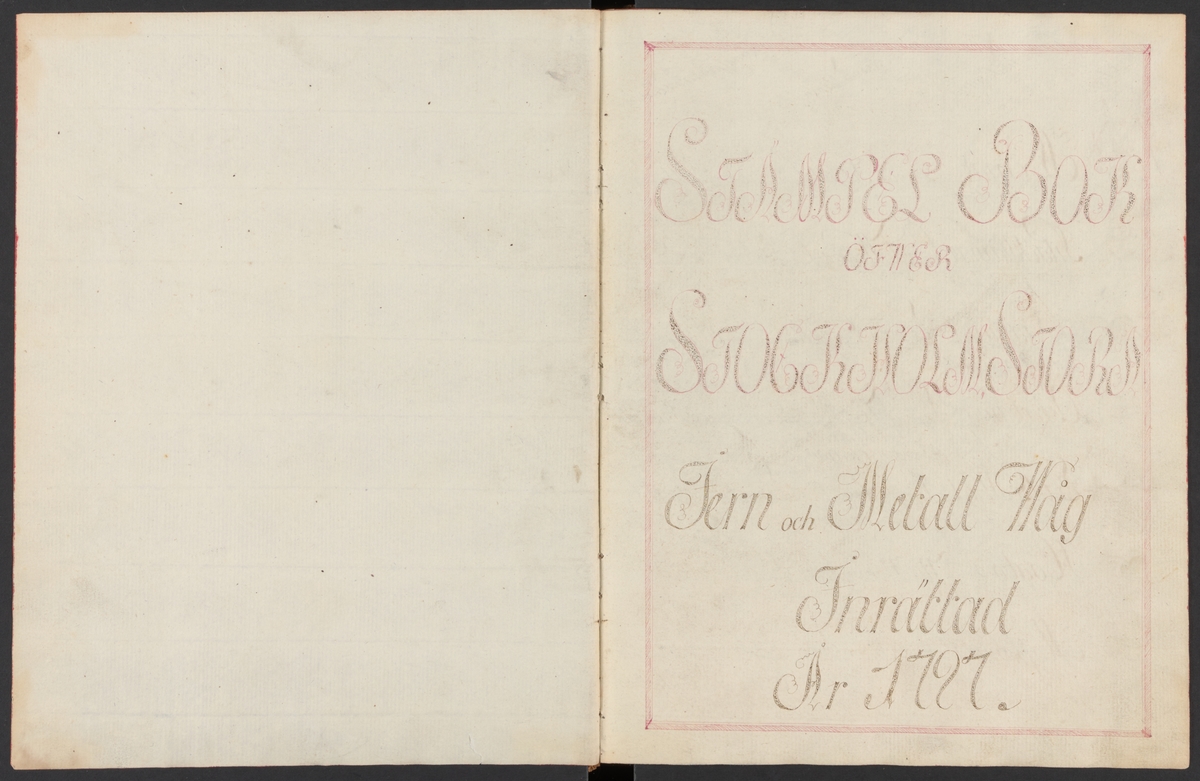 STAMPEL BOK
ÖFVER
STOCKHOLMS STORA
Jern och Metall Wåg
Inrättad
År 1797.